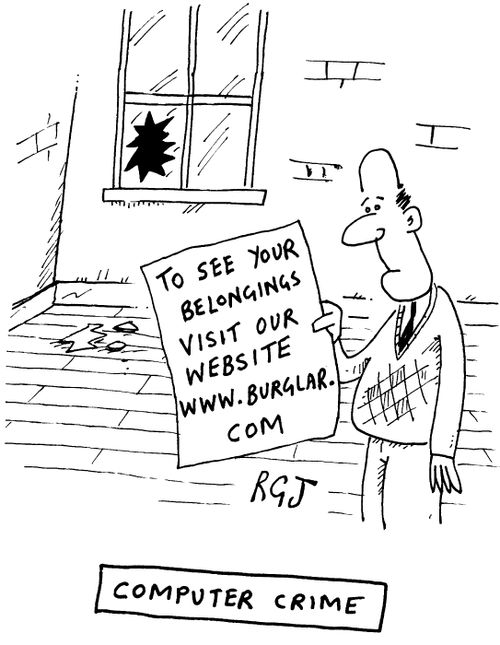 TO SEE YOUR
BELONGINGS
VISIT OUR
WEBSITE
WWW.BURGLAR.
COM
RGJ
COMPUTER CRIME